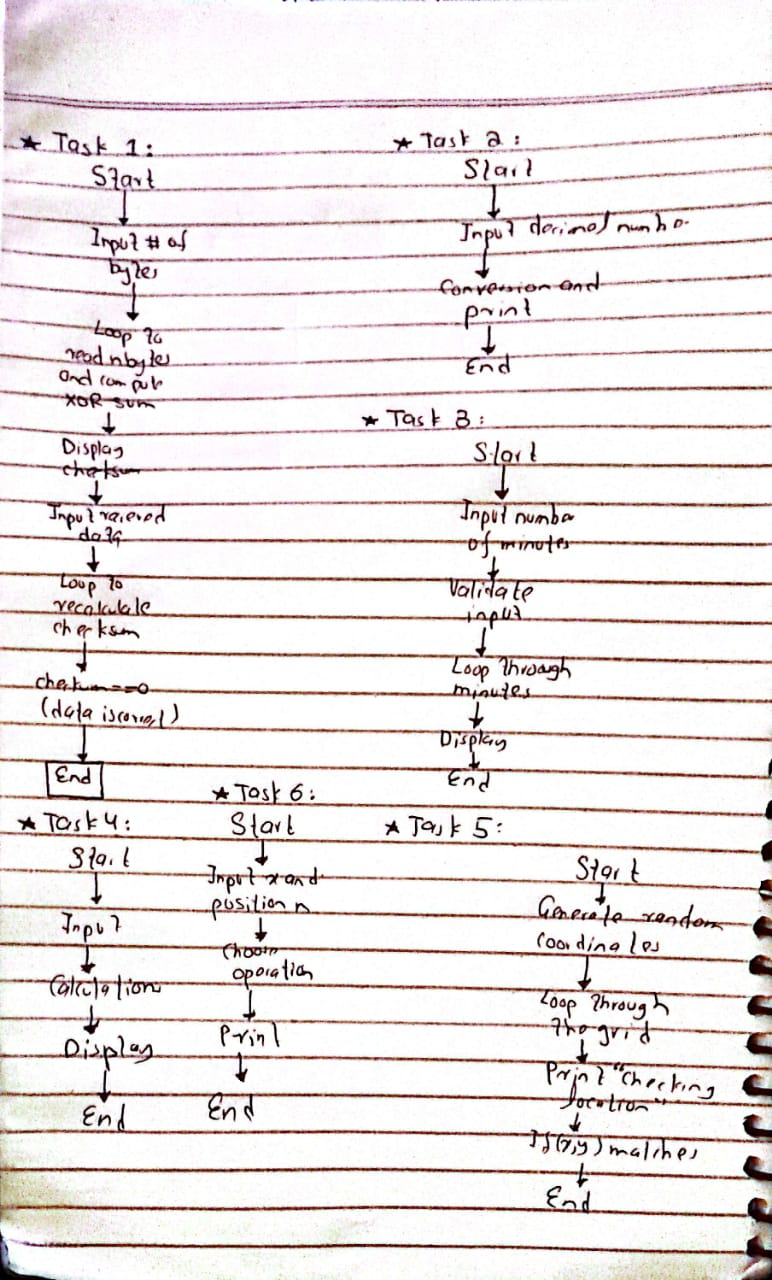 ★ Task 1:
Start
Input # of
bytes
Loop to
read n bytes
and compute
XOR sum
Display
checksum
Input
data
Loop to
recalculate
checksum
==0
(data is correct)
End
★ Task 2:
Start
Input decimal number
Conversion and
print
End
★ Task 3:
Start
Input number
of minutes
Validate
input
Loop through
minutes
Display
End
★ Task 4:
Start
Input
Calculation
Display
End
★ Task 6:
Start
Input x and
position n
operation
Print
End
★ Task 5:
Start
Generate random
coordinates
Loop through
the grid
Print "checking
location"
If(x,y) matches
End